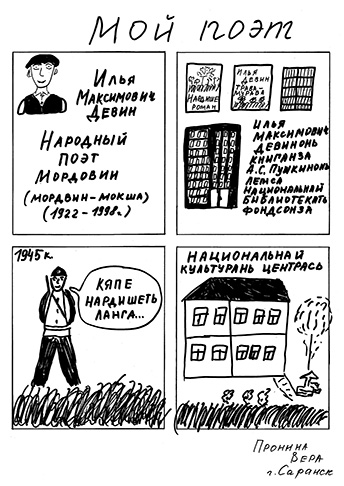 Мой поэт
Илья
Максимович
Девин
Народный
поэт
Мордовии
(мордвин-мокша)
(1922-1998г.)
Нардише
роман
Илья
Девин
Трав
Мурава
Илья
Максимович
Девинонь
книганза
А.С. Пушкинонь
лемса
национальнай
библиотекать
фондсонза
1945 к.
Кяпе
нардишеть
ланга...
Национальнай
культурань центрась
Пронина
Вера
г. Саранск